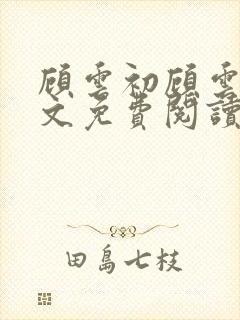 顾雲初顾雲
文免費閱讀
田島七枝